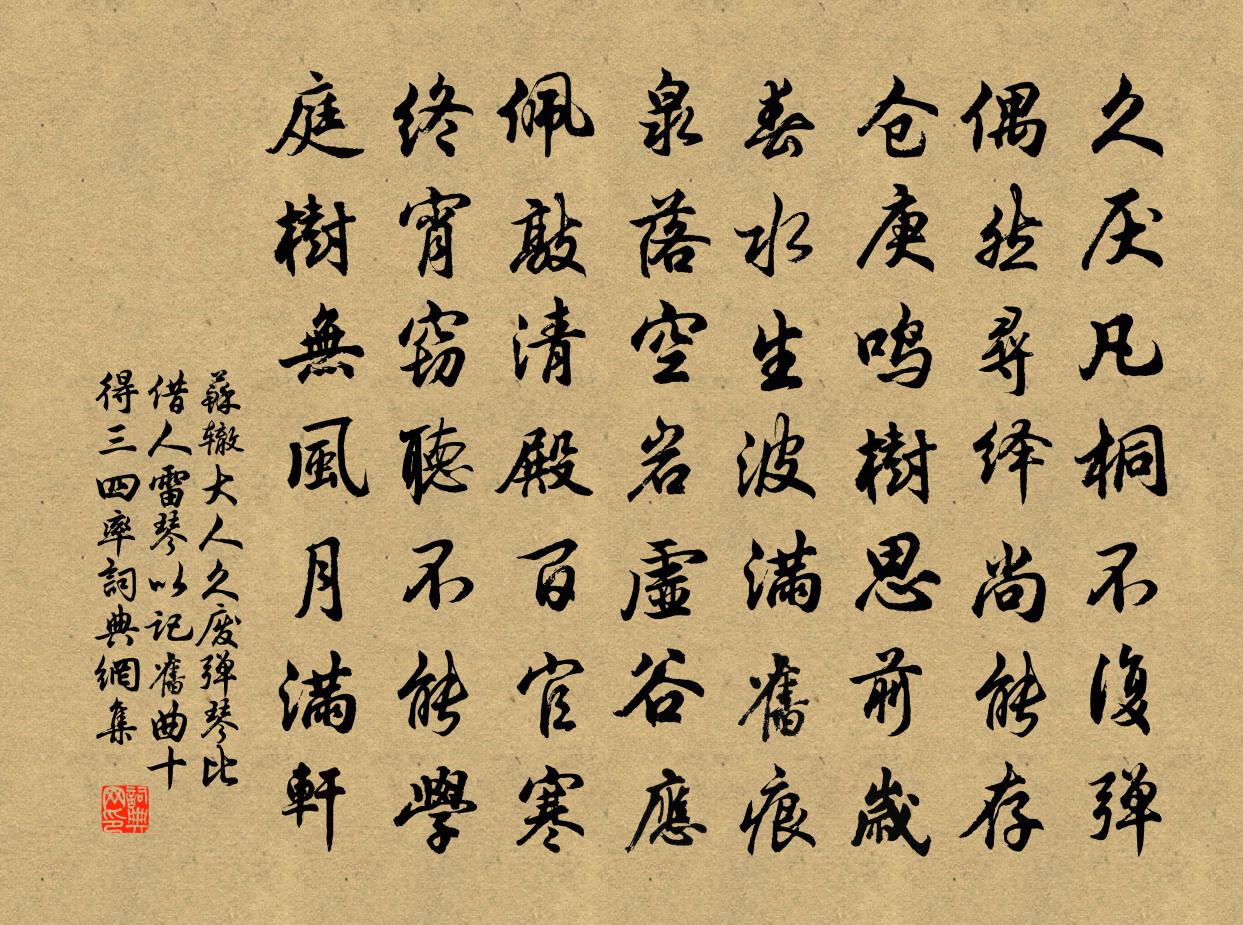 久厌凡桐不復弹
偶然尋绎尚能存
仓庚鸣樹思前歲
春水生波满舊痕
泉落空岩虚谷應
佩敲清殿百官寒
终宵窃聽不能學
庭樹無風月满軒
蘇辙大人久废弹琴比
借人雷琴以记舊曲十
得三四率詞典網集
詞典网印